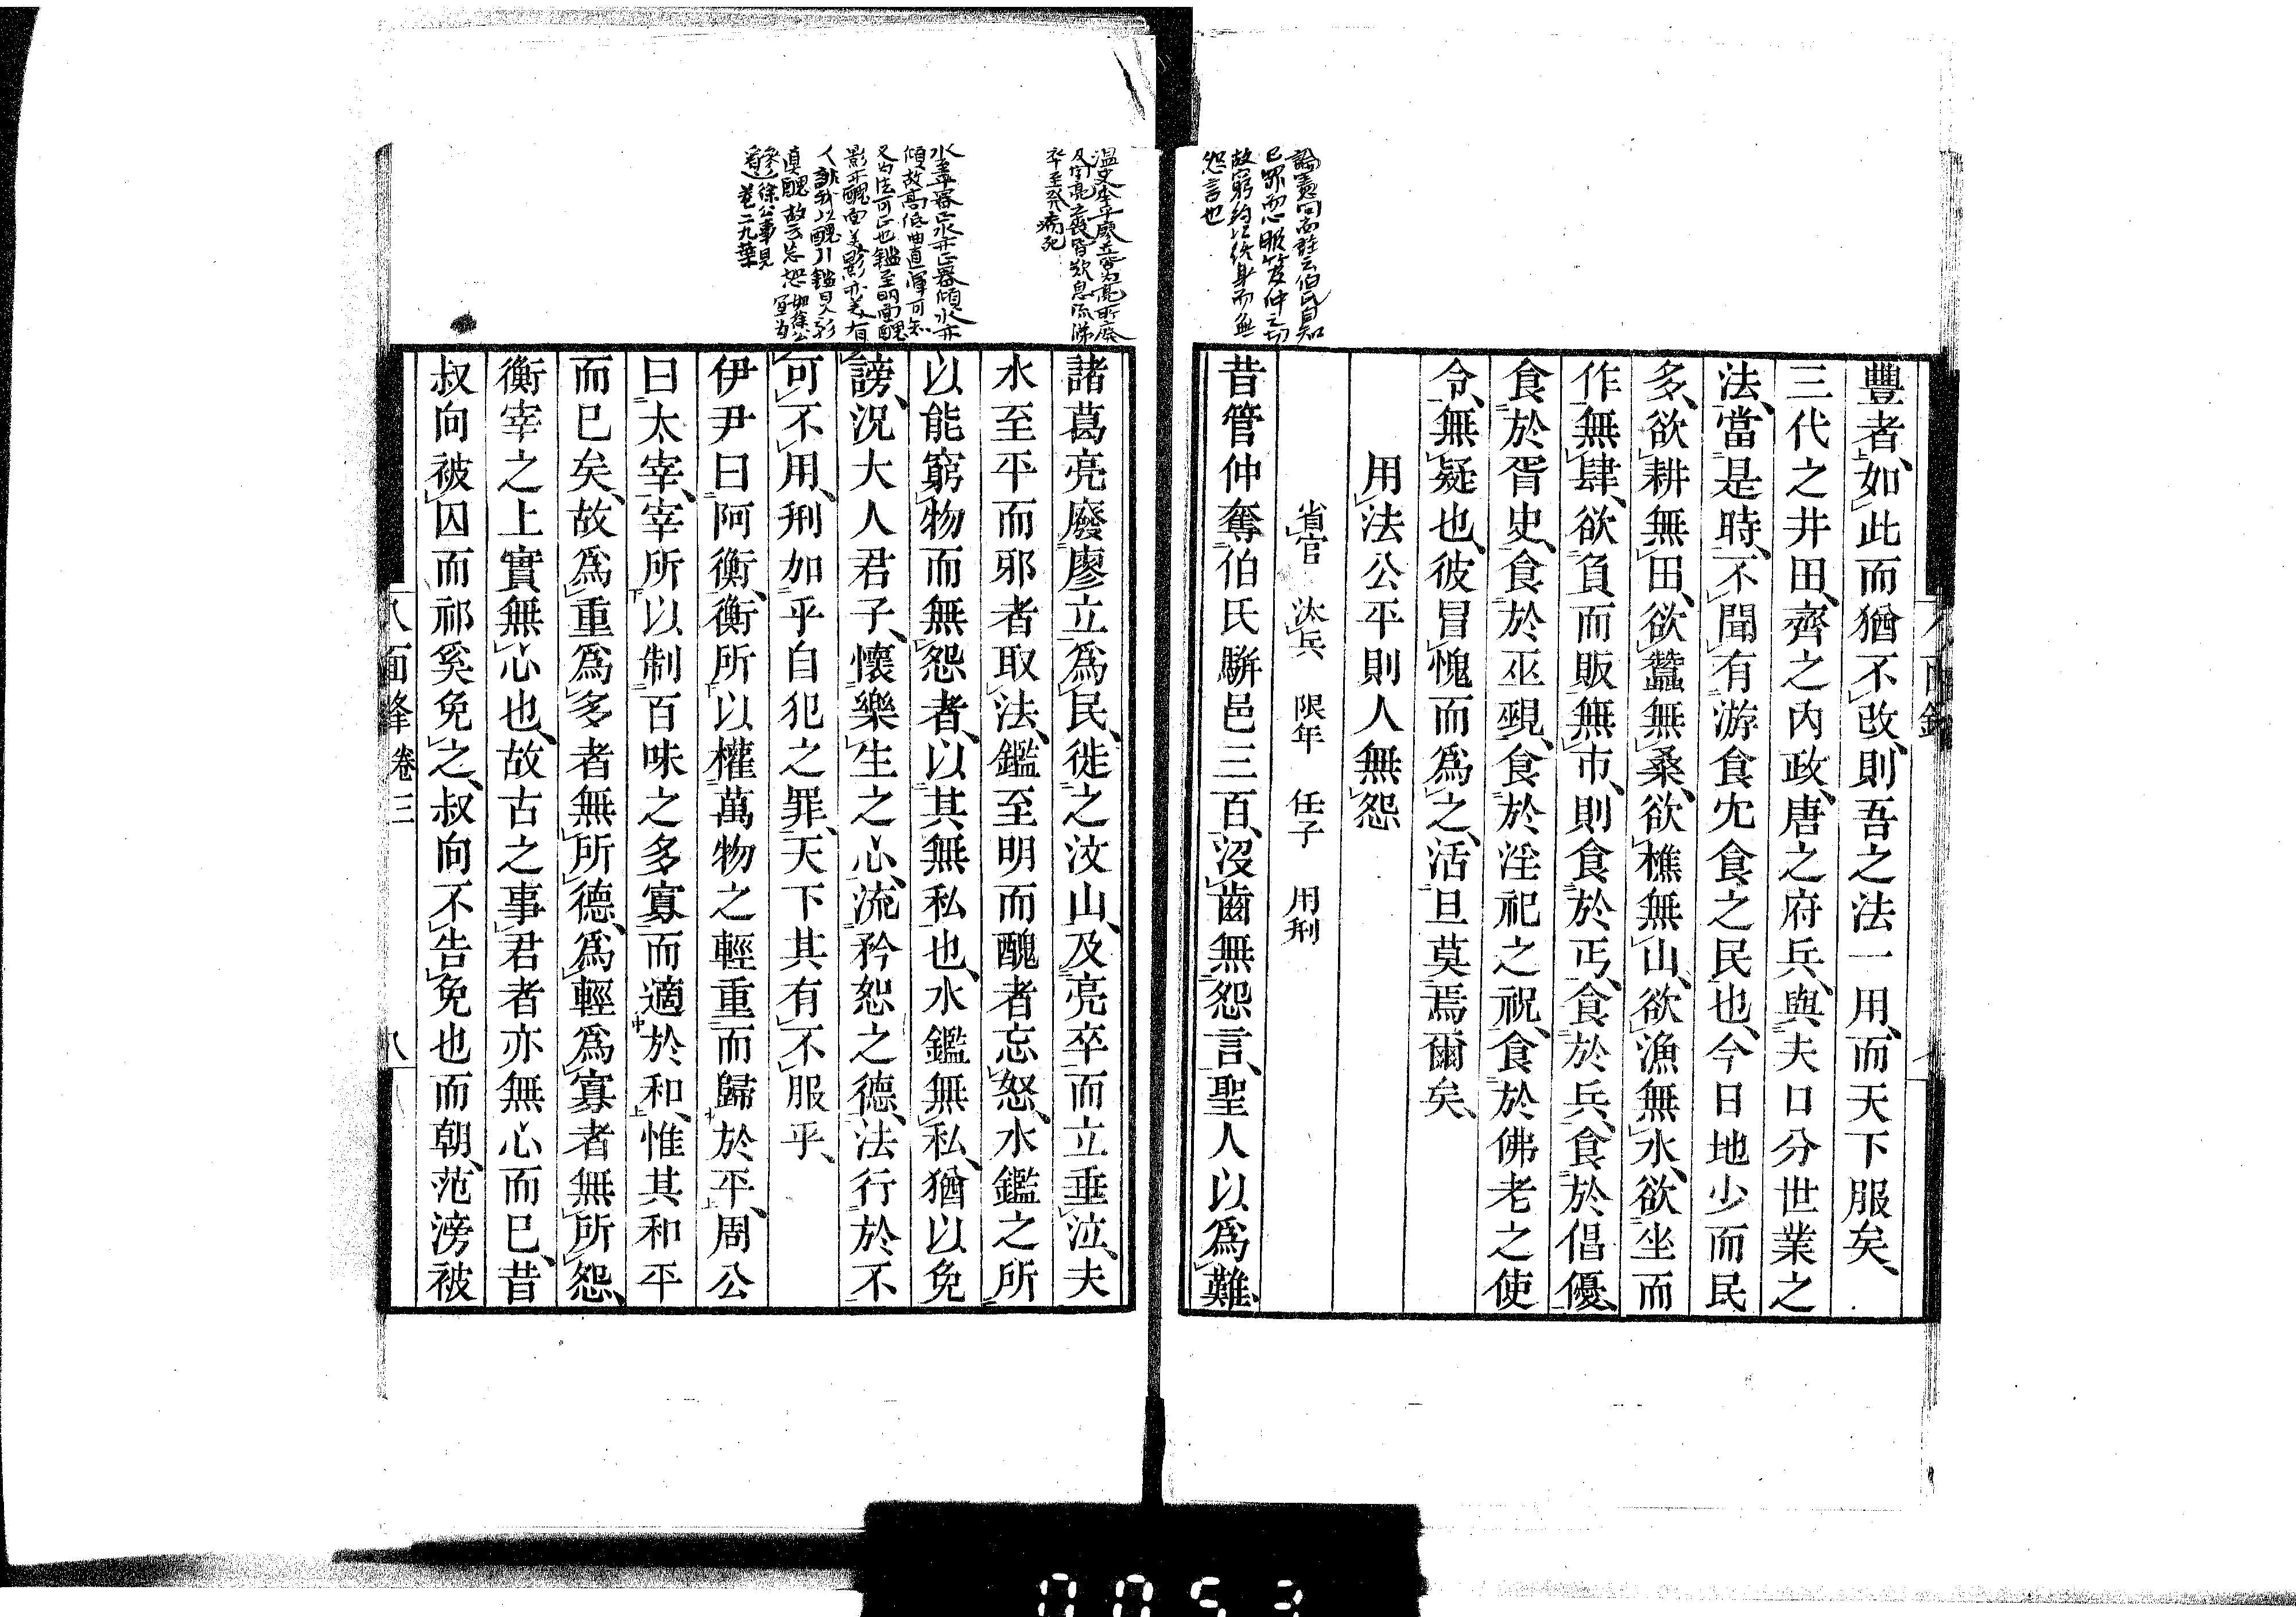 豐者、如此而猶不改、則吾之法一用、而天下服矣、
三代之井田、齊之內政、唐之府兵、與夫口分世業之
法、當是時、不聞有游食冗食之民也、今日地少而民
多、欲耕無田、欲蠶無桑、欲樵無山、欲漁無水、欲坐而
作無肆、欲負而販無市、則食於丐、食於兵、食於倡優、
食於胥史、食於巫覡、食於淫祀之祝、食於佛老之使
令、無疑也、彼冒愧而爲之、活旦莫焉爾矣、
用法公平則人無怨
省官 汰兵 限年 任子 用刑
昔管仲奪伯氏駢邑三百、沒齒無怨言、聖人以爲難、
諸葛亮廢廖立爲民、徙之汶山、及亮卒而立垂泣、夫
水至平而邪者取法、鑑至明而醜者忘怒、水鑑之所
以能窮物而無怨者、以其無私也、水鑑無私、猶以免
謗、況大人君子、懷樂生之心、流矜恕之德、法行於不
可不用、刑加乎自犯之罪、天下其有不服乎、
伊尹曰阿衡、衡所以權萬物之輕重而歸於平、周公
曰太宰、宰所以制百味之多寡而適於和、惟其和平
而已矣、故爲重爲多者無所德、爲輕爲寡者無所怨、
衡宰之上實無心也、故古之事君者亦無心而已、昔
叔向被囚而祁奚免之、叔向不告免也而朝、范滂被
八面峰 卷三 八
論憲問高註云伯氏自知
已罪而心服管仲之功
故窮約以終身而無
怨言也
卒至發病死
看卷二九葉
0053